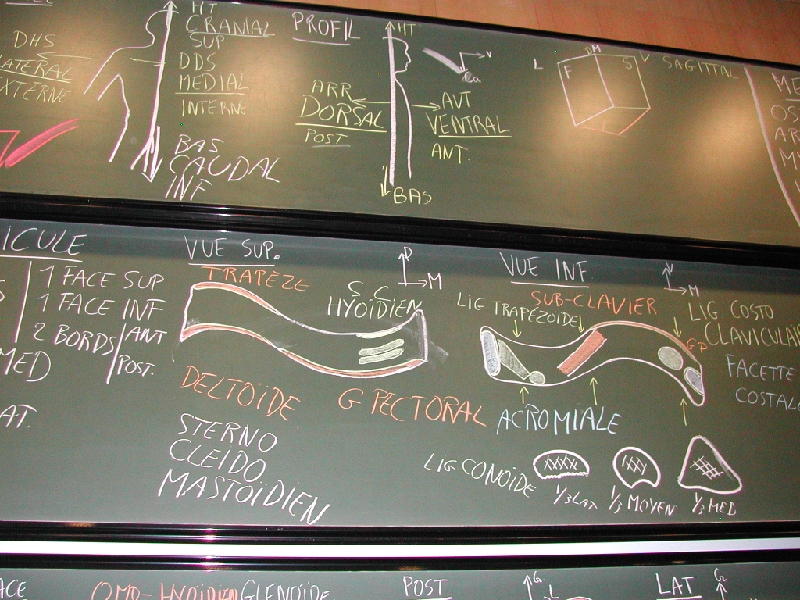 DHS
LATERAL
EXTERNE
HT
CRANIAL
SUP
DDS
MEDIAL
INTERNE
BAS
CAUDAL
INF
PROFIL
HT
ARR
DORSAL
POST
AVT
VENTRAL
ANT.
BAS
V
L
M
V
F
S
SAGITTAL
ICULE
1 FACE SUP
1 FACE INF
2 BORDS ANT
POST.
MED
AT.
VUE SUP.
TRAPÈZE
HYOÏDIEN
D
M
DELTOÏDE
G PECTORAL
STERNO
CLEIDO
MASTOÏDIEN
VUE INF.
V
M
LIG TRAPÉZOÏDE
SUB-CLAVIER
LIG COSTO
CLAVICULAI
GP
FACETTE
COSTAL
ACROMIALE
LIG CONOÏDE
1/3 LAT
1/3 MOYEN
1/3 MED
ACE
OMO-HYOÏDIEN
GLENOÏDE
POST
LAT